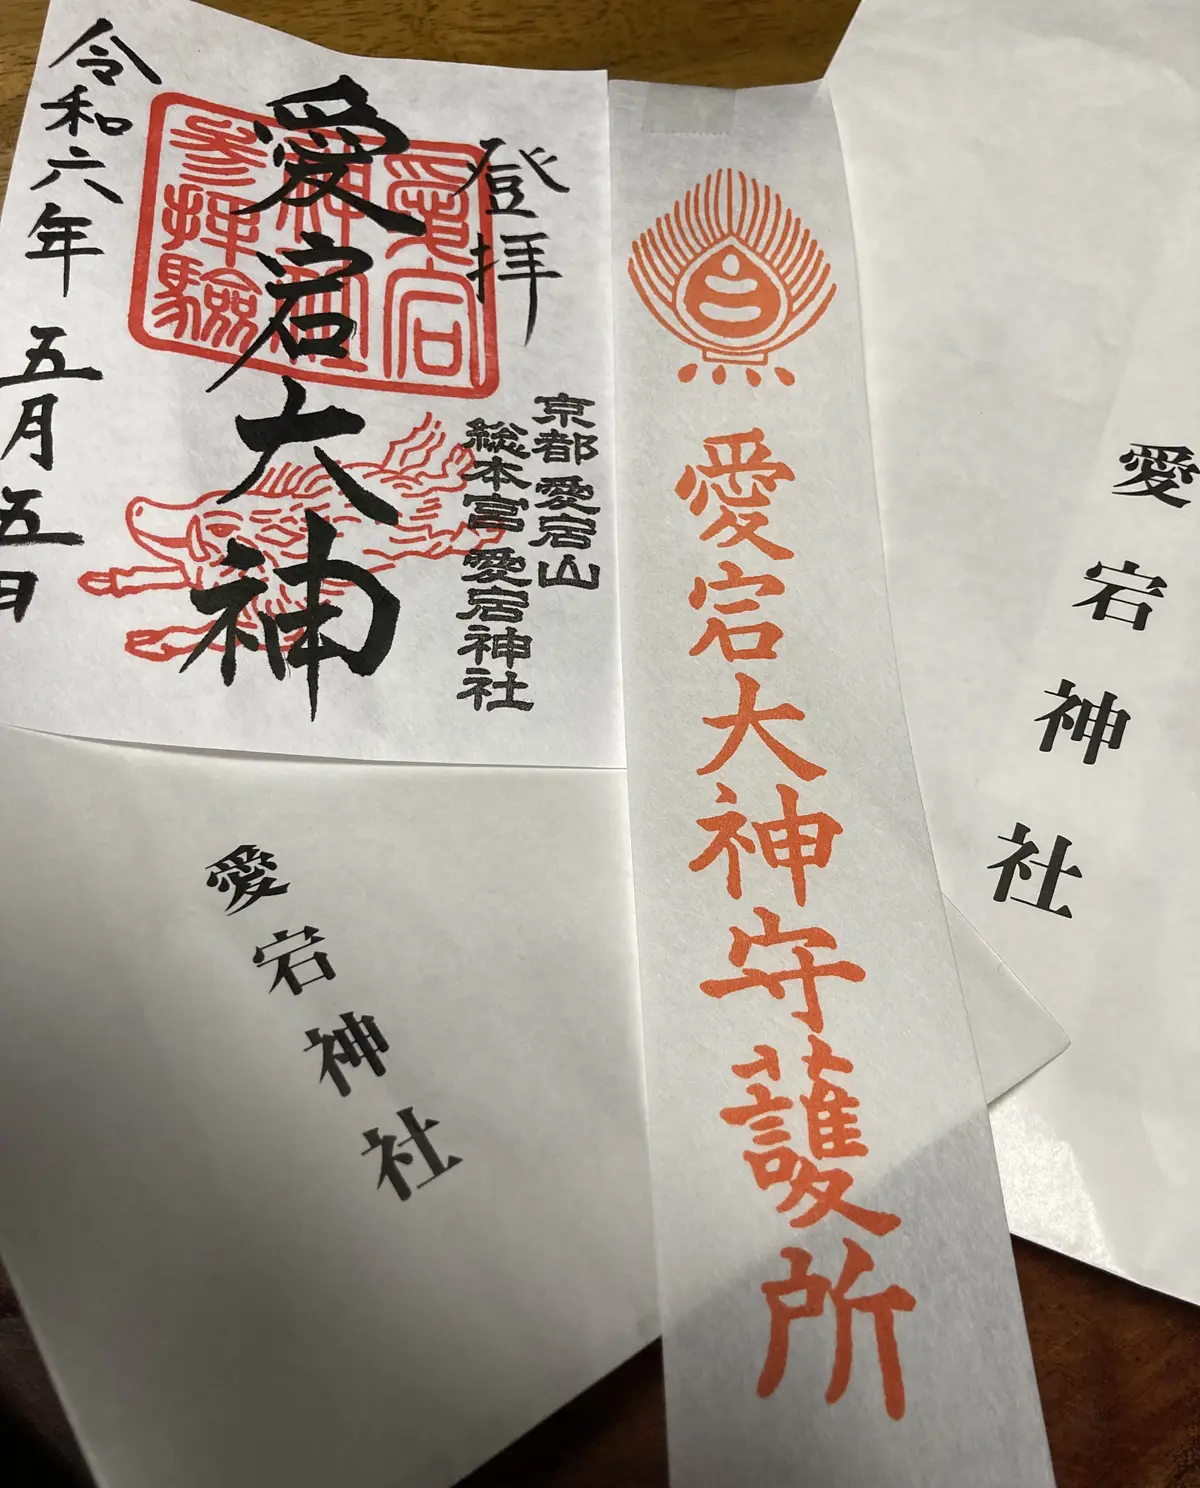 登拝
愛宕
神社
参拝験
愛宕大神
令和六年 五月五日
京都 愛宕山
総本宮 愛宕神社
愛宕大神守護所
愛宕神社
愛宕神社